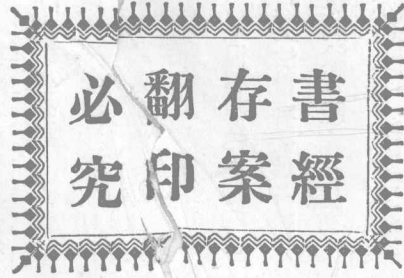 書經
存案
翻印
必究